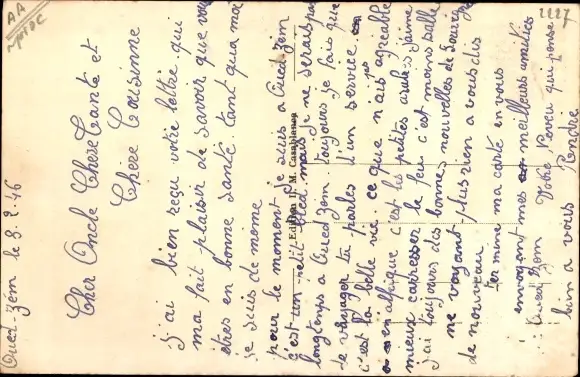 Oued Zem le 8.2.16
Cher Oncle Chere Tante et
Chere Cousinne
j'ai bien reçu votre lettre qui
ma fait plaisir de savoir que vous
etres en bonne santé tant qua moi
je suis de meme
pour le moment je suis a Oued Zem
c'est un petit bled mais je ne serais pas
longtemps a Oued Zem toujours je fais que
de voyager tu parles d'un service
c'est la belle vie ce que n'ais pas agreable
en affrique c'est les petites j'aime
mieux carresser le feu c'est moins salle
j'ai toujours des bonnes nouvelles de
ne voyant plus rien a vous dis
de nouveau
ter mine ma carte en vous
envoyant mes meilleurs amities
Votre Neveu qui pense
bien a vous
Oued Zem
Edition M. Casablanca
AA
Maroc